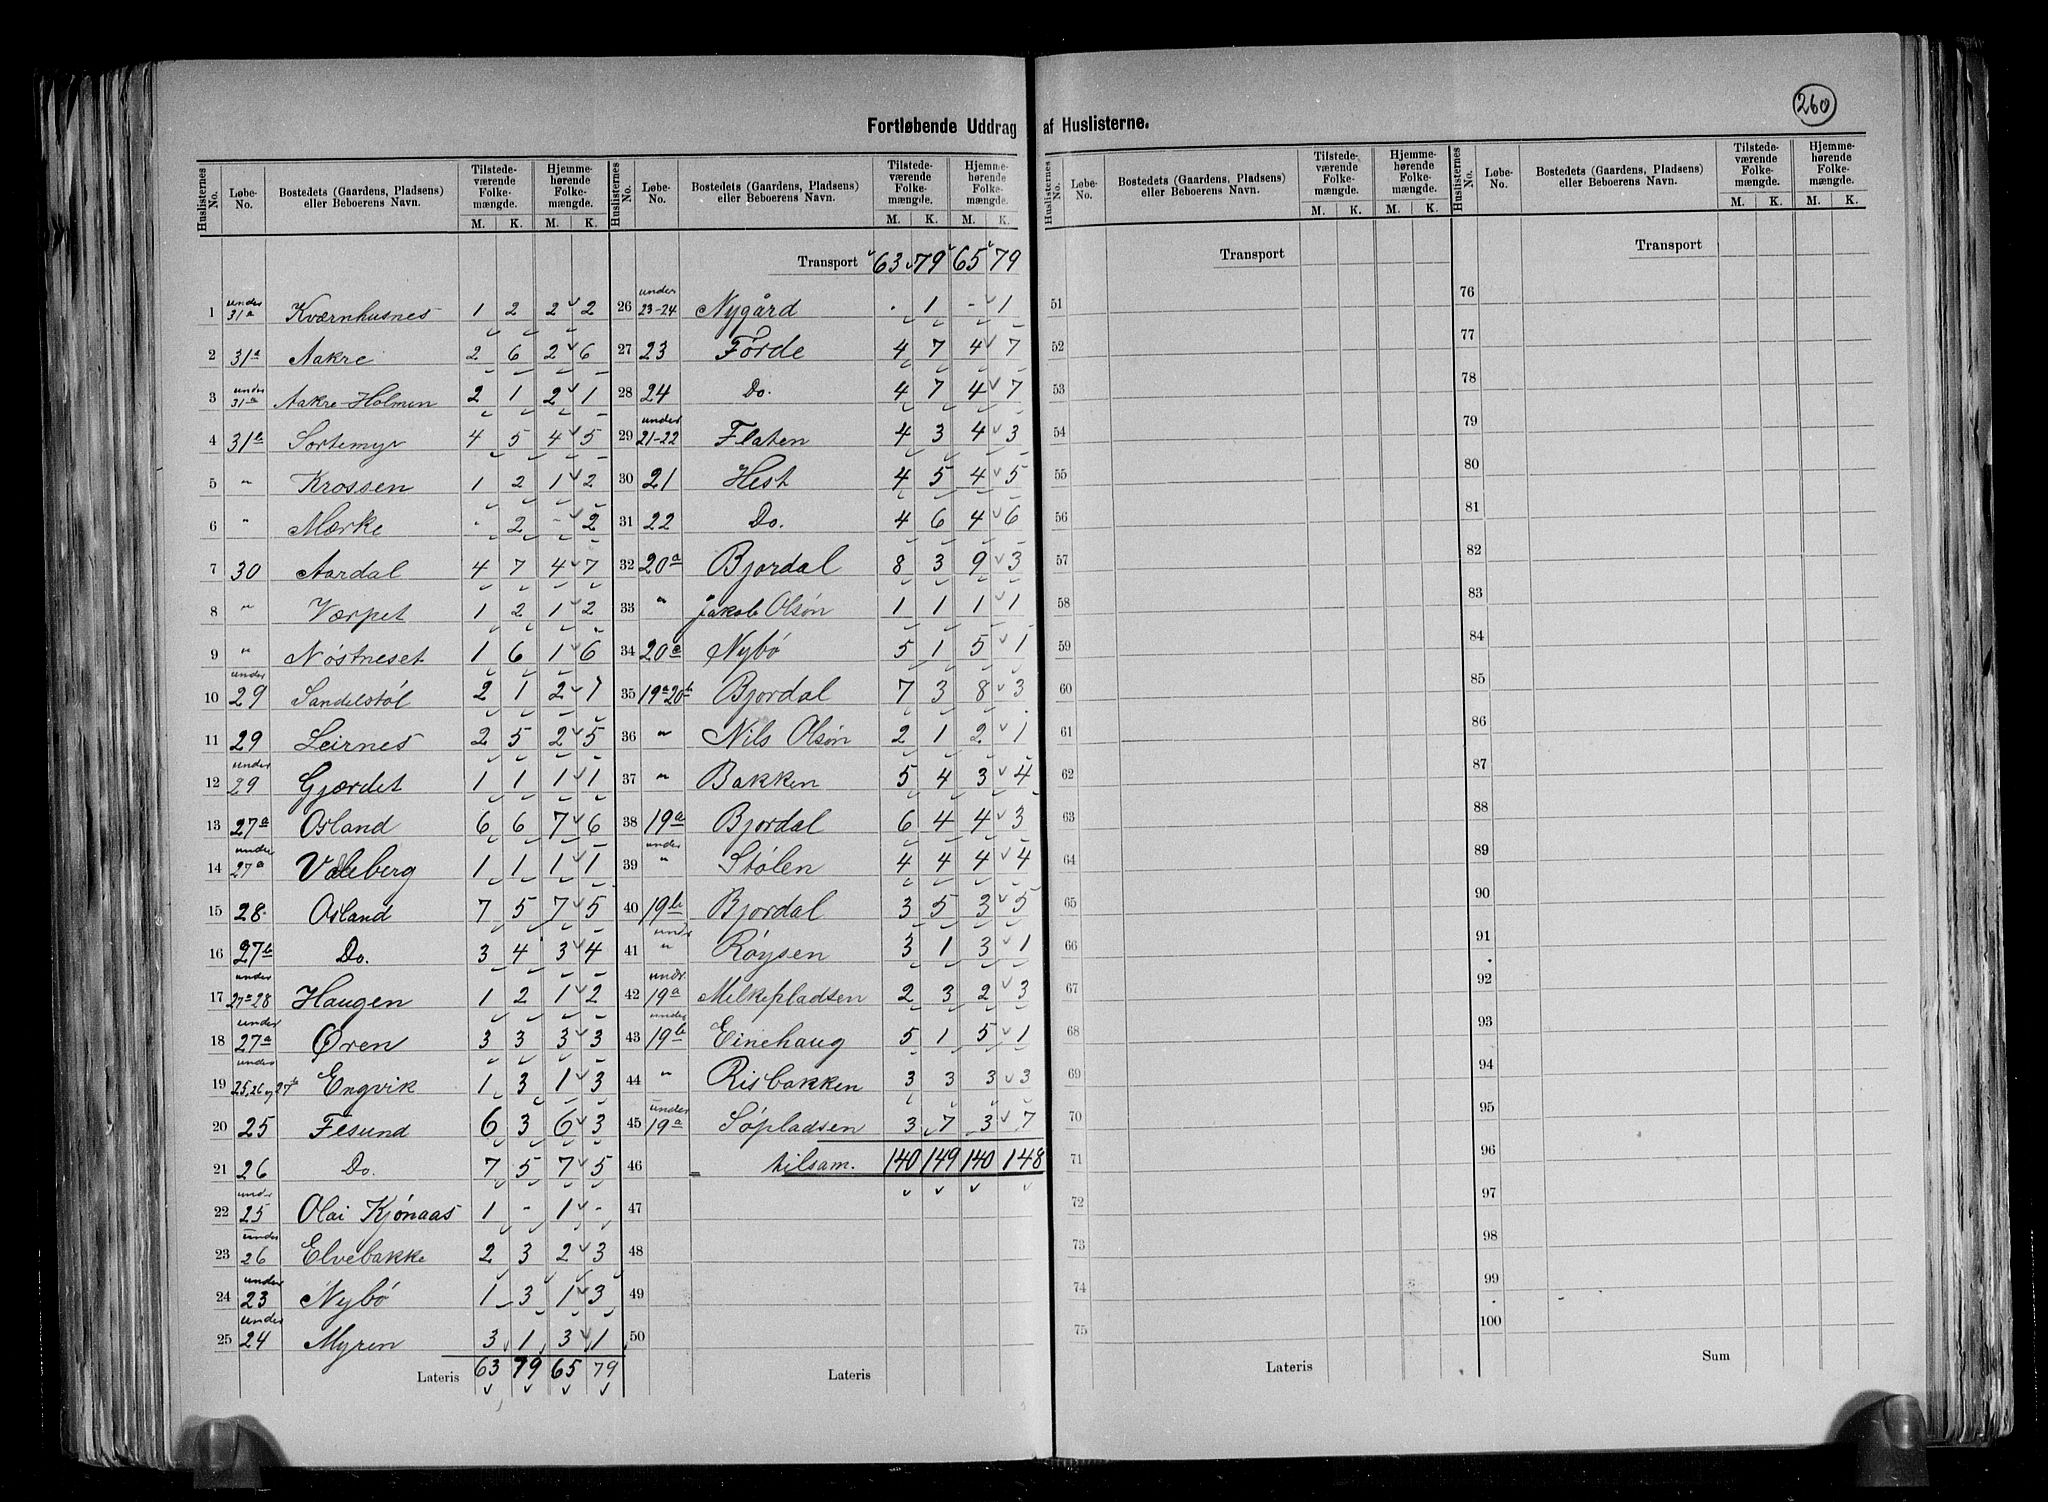 260
Fortløbende Uddrag af Huslisterne.
Huslisternes No. | Løbe-No. | Bostedets (Gaardens, Pladsens) eller Beboerens Navn. | Tilstedeværende Folkemængde. M. K. | Hjemmehørende Folkemængde. M. K.
1 under 31a Kværnhusnes 1 2 2 2
2 31a Aakre 2 6 2 6
3 under 31a Aakre-Holmen 2 1 2 1
4 31b Sortemyr 4 5 4 5
5 " Krossen 1 2 1 2
6 " Mærke - 2 - 2
7 30 Aardal 4 7 4 7
8 " Værpet 1 2 1 2
9 " Nöstneset 1 6 1 6
10 under 29 Sandelstöl 2 1 2 1
11 29 Leirnes 2 5 2 5
12 under 29 Gjærdet 1 1 1 1
13 27a Osland 6 6 7 6
14 under 27a Valeberg 1 1 1 1
15 28. Osland 7 5 7 5
16 27b Do. 3 4 3 4
17 under 27a-28 Haugen 1 2 1 2
18 under 27a Øren 3 3 3 3
19 under 25, 26 og 27a Engvik 1 3 1 3
20 25 Fesund 6 3 6 3
21 26 Do. 7 5 7 5
22 under 25 Olai Kjönaas 1 - 1 -
23 under 26 Elvebakke 2 3 2 3
24 under 23 Nybö 1 3 1 3
25 under 24 Myren 3 1 3 1
Lateris 63 79 65 79
Huslisternes No. | Løbe-No. | Bostedets (Gaardens, Pladsens) eller Beboerens Navn. | Tilstedeværende Folkemængde. M. K. | Hjemmehørende Folkemængde. M. K.
Transport 63 79 65 79
26 under 23-24 Nygård - 1 - 1
27 23 Förde 4 7 4 7
28 24 Do. 4 7 4 7
29 under 21-22 Flaten 4 3 4 3
30 21 Hest 4 5 4 5
31 22 Do. 4 6 4 6
32 20a Bjordal 8 3 9 3
33 " Jakob Olsön 1 1 1 1
34 20c Nybö 5 1 5 1
35 19a 20b Bjordal 7 3 8 3
36 " Nils Olsön 2 1 2 1
37 " Bakken 5 4 3 4
38 19a Bjordal 6 4 4 3
39 under " Stölen 4 4 4 4
40 19b Bjordal 3 5 3 5
41 under " Röysen 3 1 3 1
42 undr. 19a Melkepladsen 2 3 2 3
43 under 19b Einehaug 5 1 5 1
44 " Risbakken 3 3 3 3
45 under 19a Söpladsen 3 7 3 7
46 tilsam. 140 149 140 148
47
48
49
50
Lateris
Huslisternes No. | Løbe-No. | Bostedets (Gaardens, Pladsens) eller Beboerens Navn. | Tilstedeværende Folkemængde. M. K. | Hjemmehørende Folkemængde. M. K.
Transport
51
52
53
54
55
56
57
58
59
60
61
62
63
64
65
66
67
68
69
70
71
72
73
74
75
Lateris
Huslisternes No. | Løbe-No. | Bostedets (Gaardens, Pladsens) eller Beboerens Navn. | Tilstedeværende Folkemængde. M. K. | Hjemmehørende Folkemængde. M. K.
Transport
76
77
78
79
80
81
82
83
84
85
86
87
88
89
90
91
92
93
94
95
96
97
98
99
100
Sum